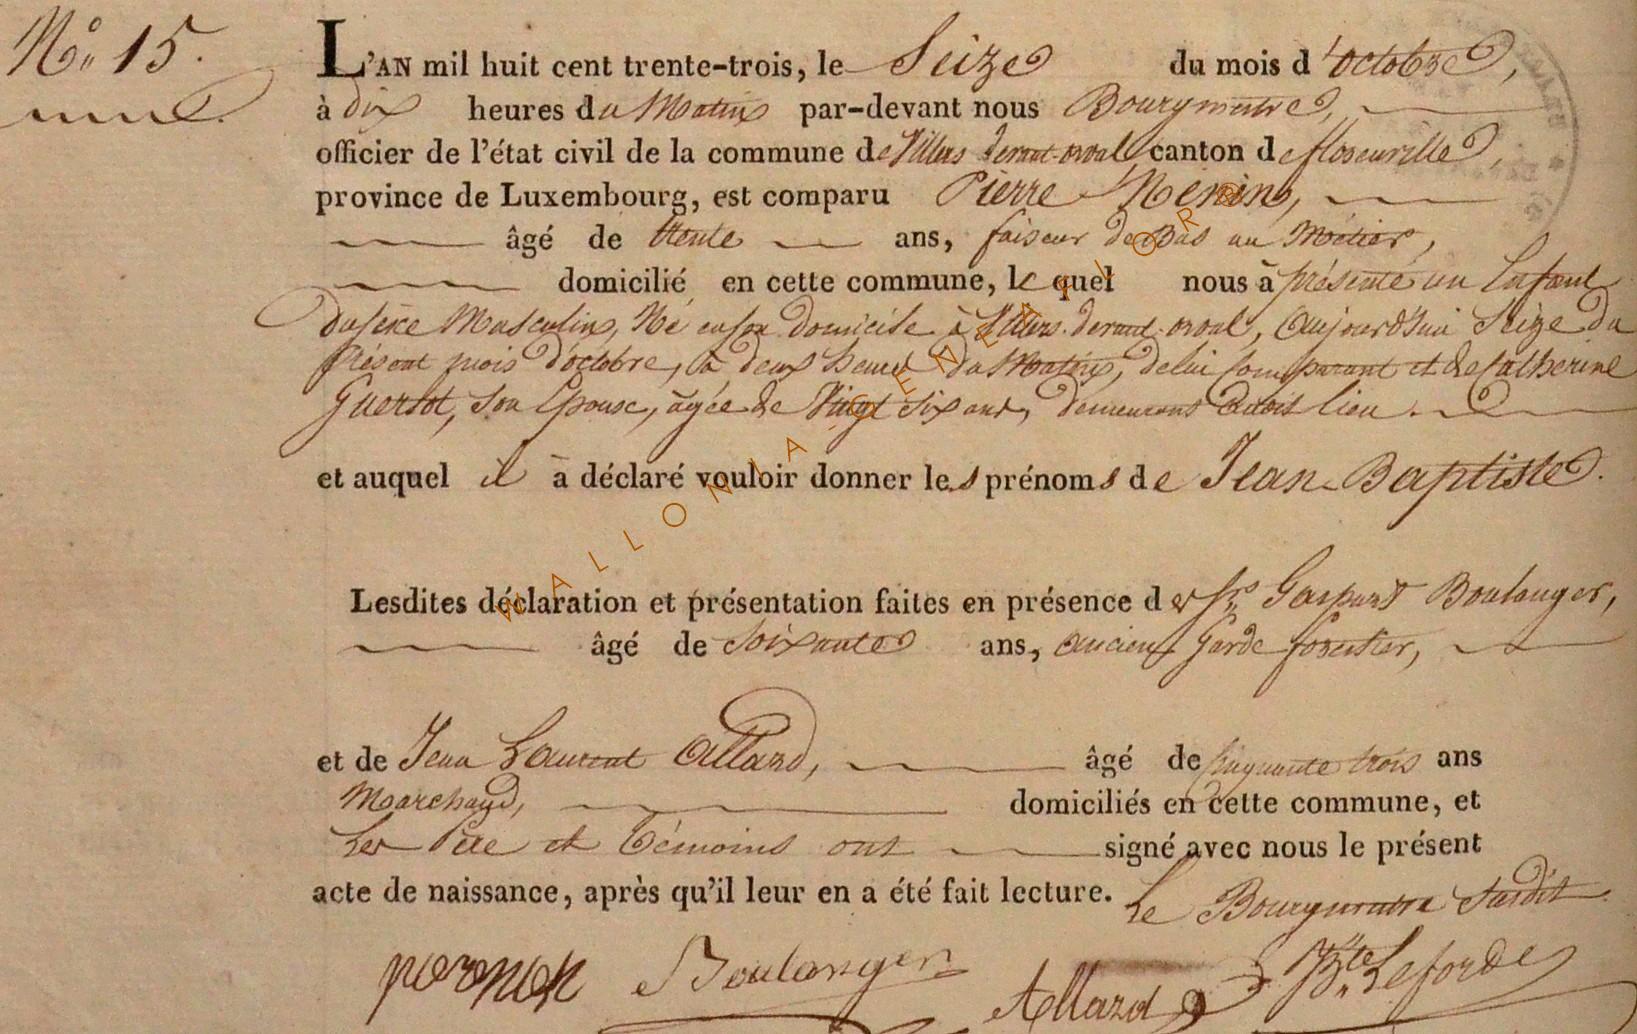 N.° 15.
L'AN mil huit cent trente-trois, le Seize du mois d'octobre,
à dix heures du Matin par-devant nous Bourgmestre,
officier de l'état civil de la commune de Villers devant-orval canton de florenville,
province de Luxembourg, est comparu Pierre Nenin,
âgé de trente ans, faiseur de Bas au Métier,
domicilié en cette commune, lequel nous à présenté un Enfant
du sèxe Masculin, Né en son domicile à Villers-devant-orval, aujourd'hui Seize du
présent mois d'octobre, à deux heures du Matin, de lui Comparant et de Catherine
Guerlot, son Epouse, agée de Vingt six ans, demeurant audit lieu.
et auquel il à déclaré vouloir donner les prénoms de Jean Baptiste.
Lesdites déclaration et présentation faites en présence de Srs Gaspard Boulanger,
âgé de Soixante ans, ancien Garde forestier,
et de Jean Laurent Allard, âgé de Cinquante trois ans
Marchand, domiciliés en cette commune, et
Les Père et témoins ont signé avec nous le présent
acte de naissance, après qu'il leur en a été fait lecture.
Le Bourgmestre Susdit
Boulanger
Allard
Bte Leforde
WALLONIA GENEALORD